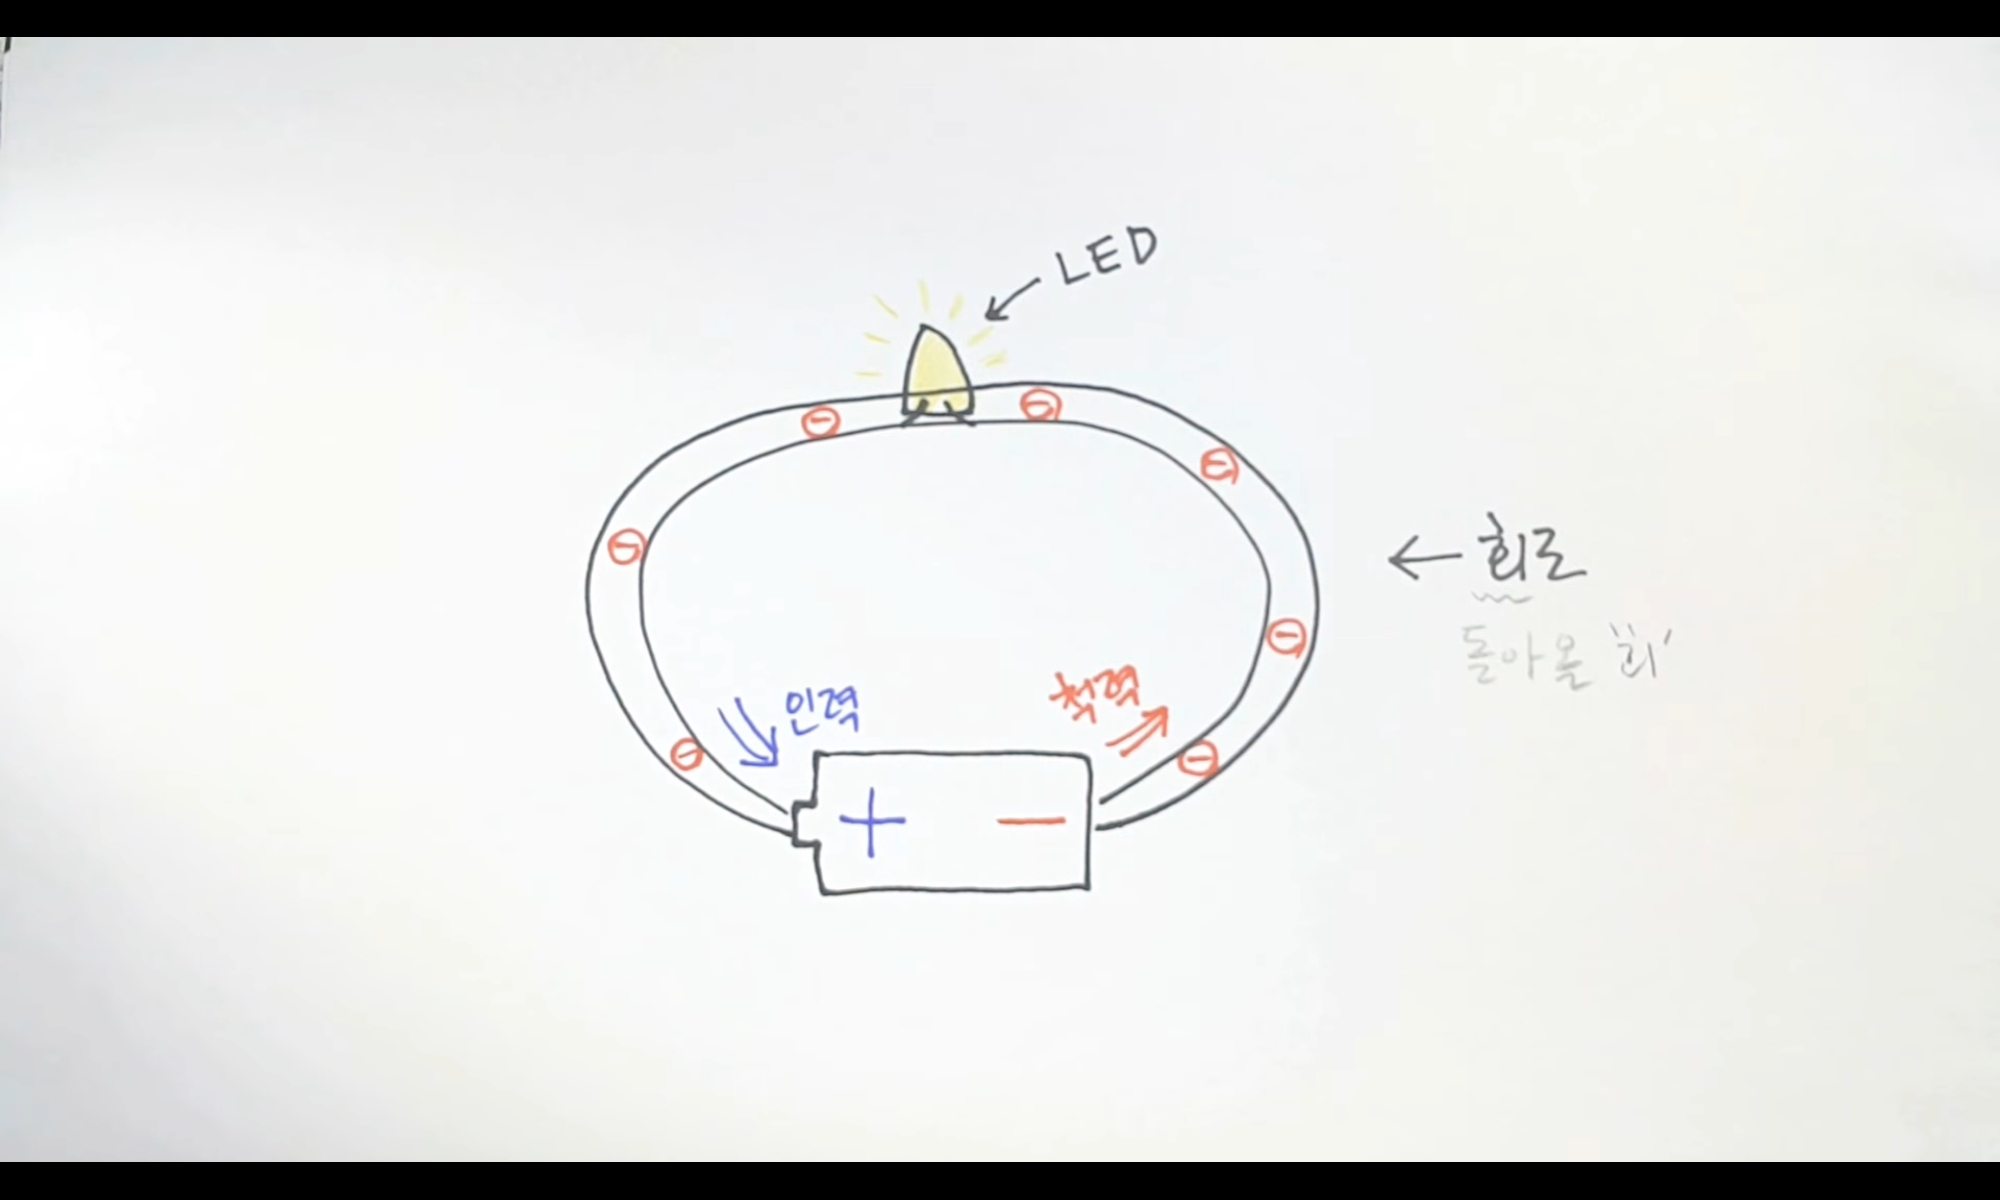 LED
회로
돌아올 '회'
인력
척력
+
−
⊖
⊖
⊖
⊖
⊖
⊖
⊖